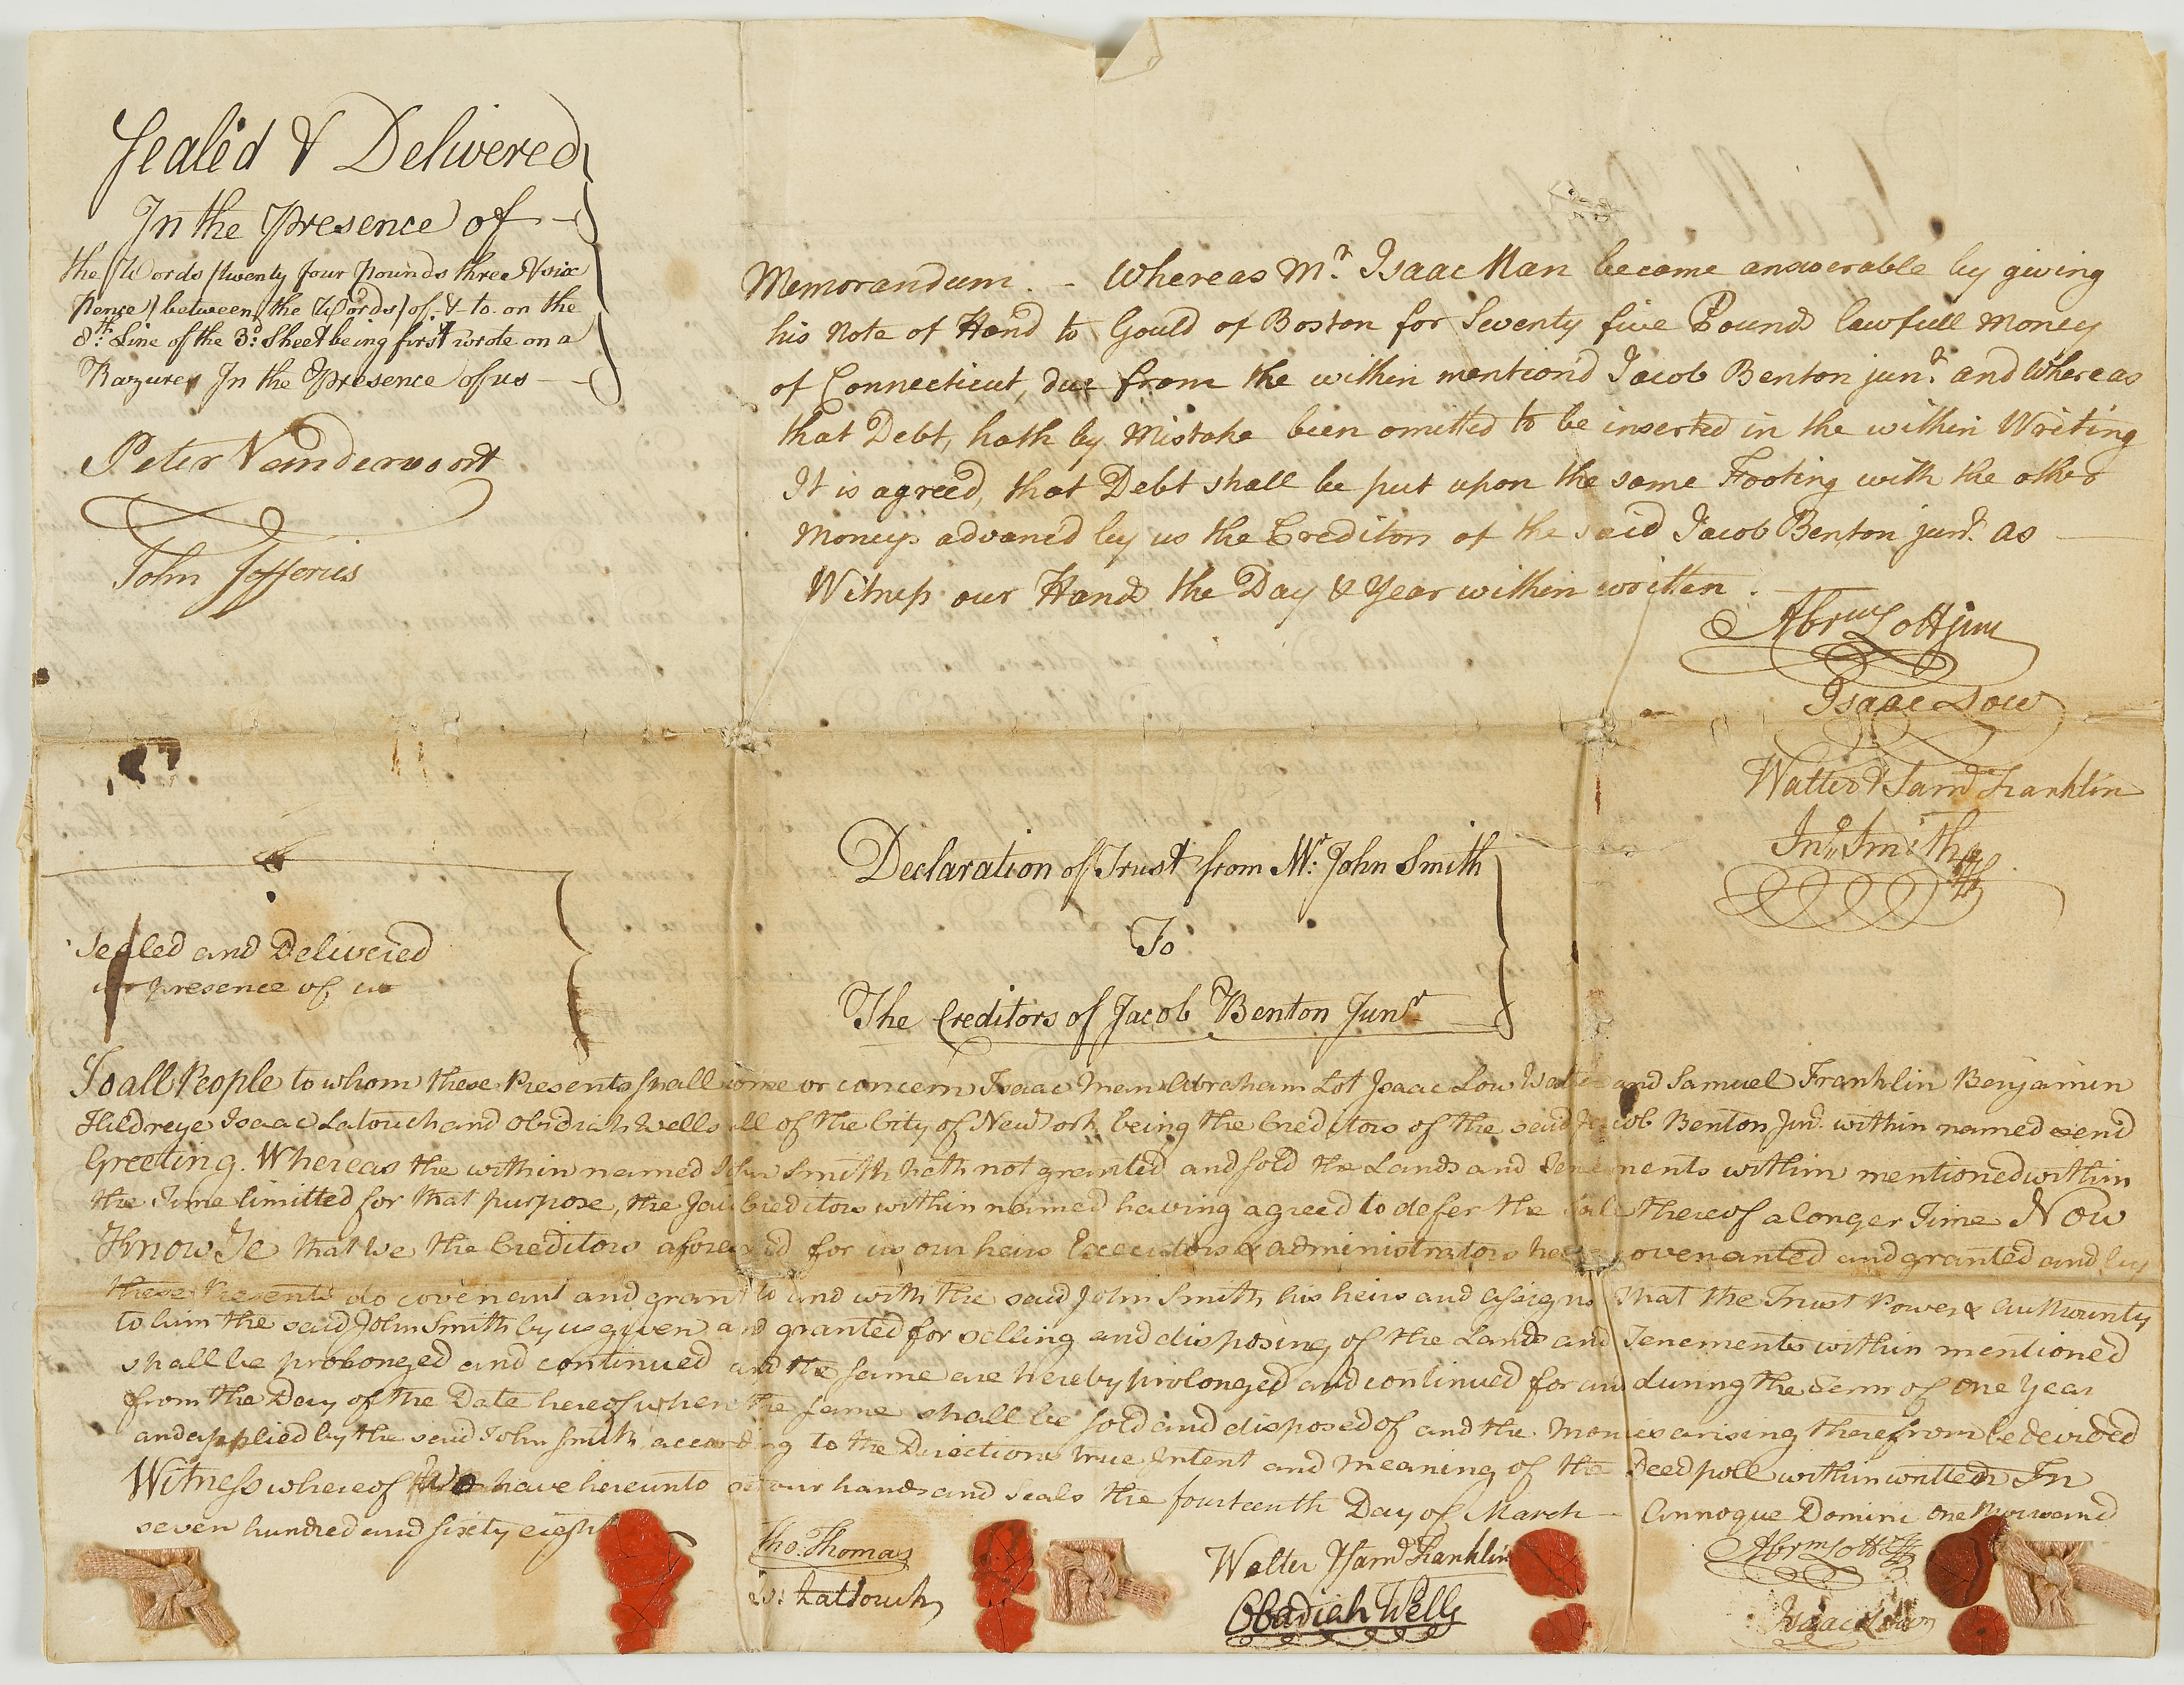 Sealed & Delivered
In the Presence of
the Words (twenty four pounds three & six
pence) between the Words of & to on the
8th Line of the 3d Sheet being first wrote on a
Razure, In the Presence of us
Peter Vandervoort
John Jefferies
Memorandum. – Whereas Mr. Isaac Man became answerable by giving
his Note of Hand to Gould of Boston for Seventy five Pounds lawfull Money
of Connecticut, due from the within mention'd Jacob Benton junr. and Whereas
that Debt, hath by Mistake been omitted to be inserted in the within Writing
It is agreed, that Debt shall be put upon the same Footing with the other
Moneys advanc'd by us the Creditors of the said Jacob Benton junr. as
Witness our Hands the Day & Year within written.
Abrm Lott junr
Isaac Low
Walter & Saml Franklin
Jno. Smith
Declaration of Trust from Mr. John Smith
To
The Creditors of Jacob Benton Junr
Sealed and Delivered
in presence of us
To all People to whom these Presents shall come or concern Isaac Man Abraham Lot Isaac Low Walter and Samuel Franklin Benjamin
Hildreye Isaac Latouch and Obidiah Wells all of the City of New York being the Creditors of the said Jacob Benton Junr. within named send
Greeting. Whereas the within named John Smith hath not granted and sold the Lands and Tenements within mentioned within
the Time limitted for that purpose, the said Creditors within named having agreed to defer the Sale thereof a longer Time Now
Know Ye that We the Creditors aforesaid for us our heirs Executors & administrators have covenanted and granted and by
these Presents do covenant and grant to and with the said John Smith his heirs and assigns That the Trust Power & Authourity
to him the said John Smith by us given and granted for selling and disposing of the Lands and Tenements within mentioned
shall be prolonged and continued and the same are hereby prolonged and continued for and during the Term of One Year
from the Day of the Date hereof when the same shall be sold and disposed of and the Monies arising therefrom be devided
and applied by the said John Smith according to the Directions true Intent and meaning of the Deed poll within written In
Witness whereof We have hereunto set our hands and seals the fourteenth Day of March – Annoque Domini One thousand
seven hundred and sixty eight
Tho. Thomas
Is: Latouch
Walter & Saml Franklin
Obadiah Wells
Abrm Lott
Isaac Low